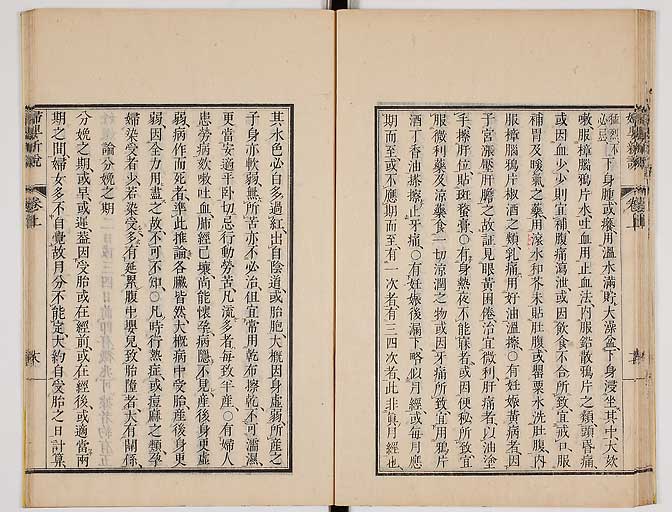 下身腫或癢用溫水滿貯大澡盆下身浸坐其中大欬
嗽服樟腦鴉片水吐血用止血法內服鉛散鴉片之類頭昏痛
或因血少少則宜補腹痛瀉泄或因飲食不合所致宜戒口服
補胃及暖氣之藥用滾水和芥末貼肚腹或罌粟水洗肚腹內
服樟腦鴉片椒酒之類乳痛用好油溫擦○有妊娠黃病者因
子宮漲壓肝膽之故証見眼黃困倦治宜微利肝痛者以油塗
手擦肝位貼斑蝥膏○有身熱夜不能寐者或因便秘所致宜
服微利藥及涼藥食一切涼潤之物或因牙痛所致宜用鴉片
酒丁香油搽止牙痛○有妊娠後漏下略似月經或每月應
期而至或不應期而至有一次者有三四次者此非真月經也
婦嬰新說
卷上
其水色必白多過紅出自陰道或胎胞大概因身虛弱所產之
子身亦軟弱無所苦亦不必治但宜常用乾布擦乾不可濡濕
更當安適平臥切忌行動勞苦凡流多者每致半產○有婦人
患勞病欬嗽吐血肺經已壞尚能懷孕病隱不見產後身更虛
弱病作而死者準此推論各臟皆然大概病中受胎產後身更
弱因全力用盡之故不可不知○凡時行熱症或痘麻之類孕
婦染受者少若染受多有延累腹中嬰兒致胎墮者大有關係
論分娩之期
分娩之期或早或遲蓋因受胎或在經前或在經後或適當兩
期之間婦女多不自覺故月分不能定大約自受胎之日計算
婦嬰新說
卷上